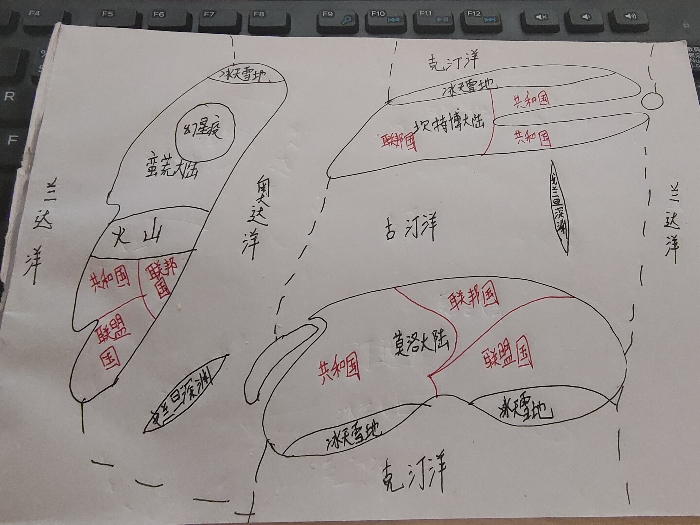 F4
F5
F6
F7
F8
F9
F10
F11
F12
R
F
克汀洋
冰天雪地
冰天雪地
共和国
幻星疫
联邦国
大陆
共和国
蛮荒大陆
三达洋
奥达洋
三达洋
火山
古汀洋
旦深渊
共和国
联邦国
联盟国
联邦国
莫洛大陆
共和国
联盟国
旦深渊
冰天雪地
冰天雪地
克汀洋